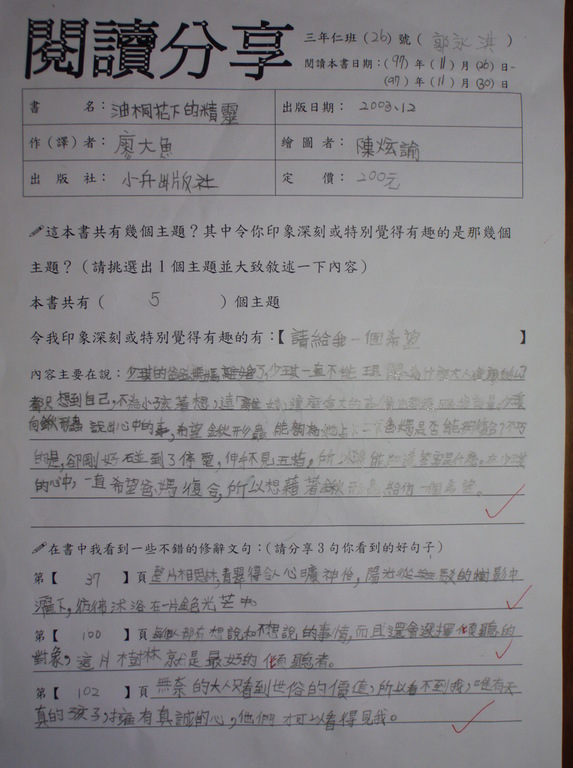 閱讀分享
三年仁班(26)號(郭永淇)
閱讀本書日期：(97)年(11)月(26)日-
(97)年(11)月(30)日
書名：油桐花下的精靈 出版日期：2003.12
作(譯)者：廖大魚 繪圖者：陳炫諭
出版社：小兵出版社 定價：200元
這本書共有幾個主題？其中令你印象深刻或特別覺得有趣的是那幾個
主題？(請挑選出1個主題並大致敘述一下內容)
本書共有(5)個主題
令我印象深刻或特別覺得有趣的有：【請給我一個希望】
內容主要在說：少琪的爸爸媽媽離婚了，少琪一直不能
都只想到自己，不為小孩著想，這
向鍬形蟲說出心中的事，希望鍬形蟲能夠為她
的是，卻剛好碰到了停電，伸手不見五指，所以 在少琪
的心中，一直希望爸媽復合，所以想藉著鍬形蟲給她一個希望。
在書中我看到一些不錯的修辭文句：(請分享3句你看到的好句子)
第【37】頁整片相思林，青翠得令人心曠神怡，陽光從 的樹影中
灑下，彷彿沐浴在一片金色光芒中。
第【100】頁每個人都有想說和不想說的事情，而且還會選擇傾聽的
對象，這片樹林就是最好的傾聽者。
第【102】頁無奈的大人只看到世俗的價值，所以看不到我，唯有天
真的孩子，擁有真誠的心，他們才可以看得見我。